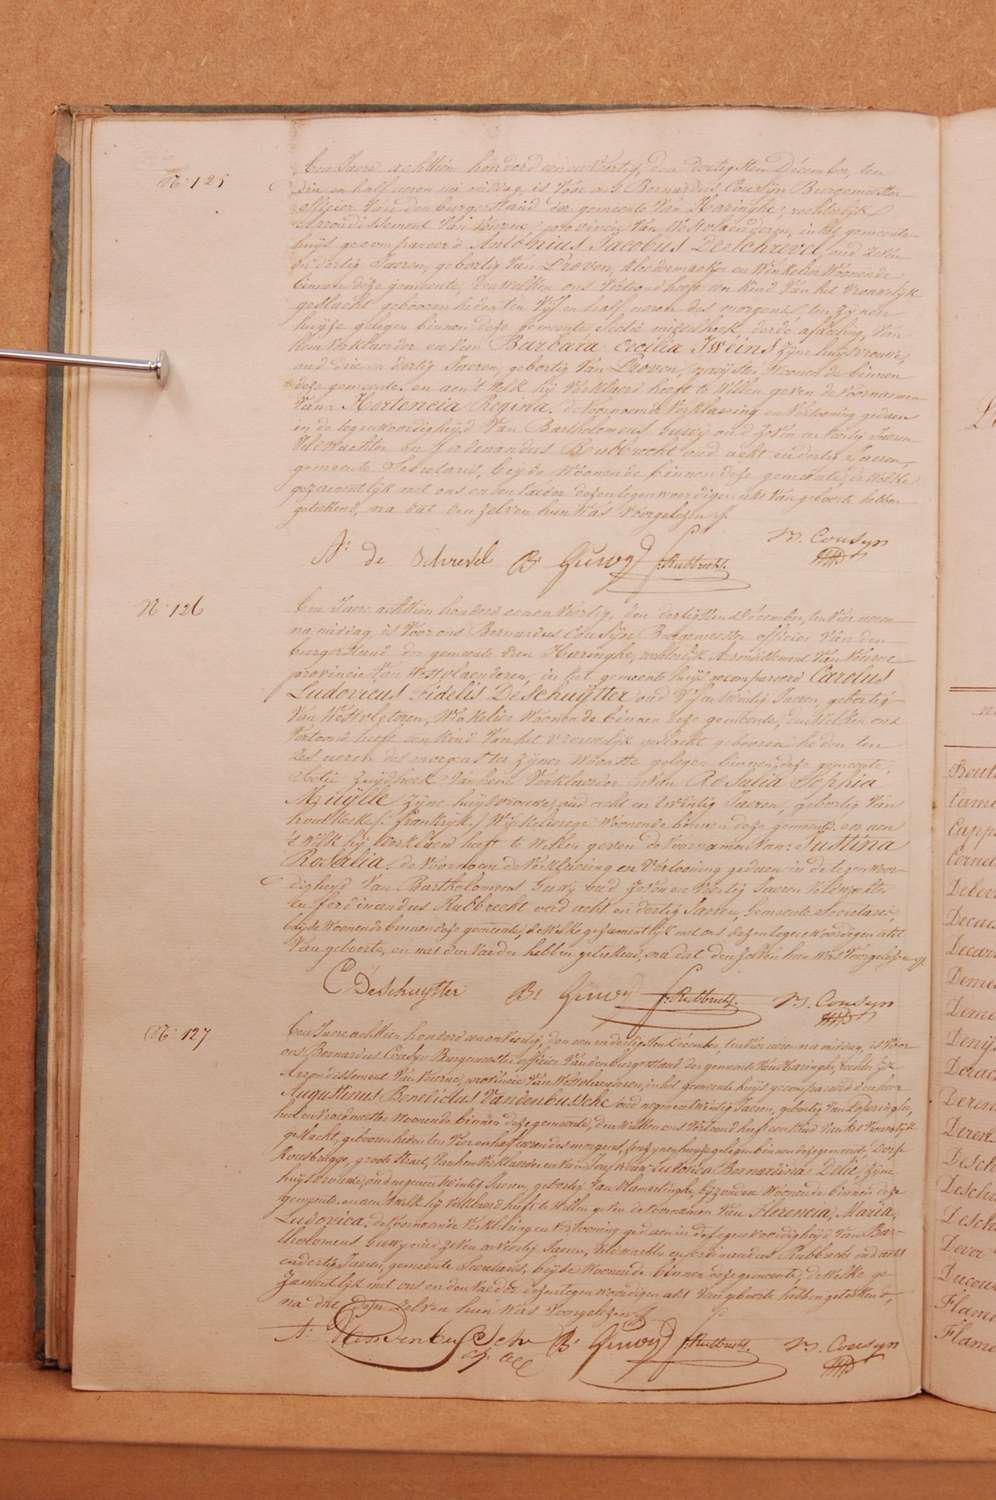 N: 125
Een Jaere achttien honderd een en veertig, den dertigsten December, ten
drie en half uren na middag, is voor ons Bernardus Cousyn Burgemeester
officier van den burgerstand der gemeente van Haringhe, rechterlijk
Arrondissement van Veurne, provincie van Westvlaenderen, in het gemeente
huijs gecompareerd Antonius Jacobus DeSchrevel, oud zeven
en dertig Jaeren, gebortig van Proven, kleedermaeker en Winkelier Woonende
binnen deze gemeente, den welken ons vertoond heeft een Kind van het vrouwelijk
geslacht gebooren heden ten Vijf en half uren des morgens, ten zynen
huijze gelegen binnen deze gemeente, sectie derde afdeeling, van
hem verklaerder en van Barbara Cecilia Iweins zyne huijsvrouwe,
oud drie en dertig Jaeren, gebortig van Proven, Woonende binnen
deze gemeente, en aen 't welk hij verklaerd heeft te willen geven de voornaemen
van: Hortencia Regina. de voornoemde verklaering en vertooning gedaen
in de tegenwoordigheijd van Bartholomeus Guwy oud zeven en veertig Jaeren
Veldwachter en Ferdinandus Rubbrecht oud acht en dertig Jaeren,
gemeente Secretaris, beyde Woonende binnen deze gemeente, de welke
gezaementlijk met ons en den vaeder dezen tegenwoordigen akt van geboorte hebben
geteekend, na dat den zelven hun was voorgelezen
A: de Schrevel B: Guwy f. Rubbrecht. B. Cousyn
N: 126
Een Jaere achttien honderd een en veertig, den dertigsten December, ten vier uren
na middag, is voor ons Bernardus Cousyn Burgemeester officier van den
burgerstand der gemeente van Haringhe, rechterlijk Arrondissement van Veurne
provincie van Westvlaenderen, in het gemeente huijs gecompareerd Carolus
Ludovicus Fidelis DeSchuytter oud Vijf en twintig Jaeren, gebortig
van Westvleteren, Winkelier Woonende binnen deze gemeente, den welken ons
vertoond heeft een Kind van het vrouwelijk geslacht gebooren heden ten
zes uren des morgens ten zijner Woonste gelegen binnen deze gemeente,
sectie Zuijdhoek van hem verklaerder en van Rosalia Sophia
Muylle zyne huijsvrouwe, oud acht en twintig Jaeren, gebortig van
houtkerke /: frankryk :/ Winkelierege Woonende binnen deze gemeente, en aen
't welk hij verklaerd heeft te willen geven de voornaemen van: Justina
Rosalia, de voornoemde verklaering en vertooning gedaen in de tegenwoor-
digheijd van Bartholomeus Guwy oud zeven en veertig Jaeren Veldwachter
en Ferdinandus Rubbrecht oud acht en dertig Jaeren, Gemeente Secretaris,
beijde Woonende binnen deze gemeente, de welke gezaementlijk met ons dezen tegenwoordigen akt
van geboorte, en met den vaeder hebben geteekend, na dat den zelven hun was voorgelezen
C DeSchuytter B: Guwy f. Rubbrecht. B. Cousyn
N: 127
Een Jaere achttien honderd een en veertig, den een en dertigsten December, ten vier uren na middag, is voor
ons Bernardus Cousyn Burgemeester officier van den burgerstand der gemeente van Haringhe, rechterlijk
Arrondissement van Veurne, provincie van Westvlaenderen, in het gemeente huijs gecompareerd
Augustinus Benedictus Vandenbussche oud negen en twintig Jaeren, gebortig van Poperinghe,
Woonende binnen deze gemeente, den welken ons vertoond heeft een Kind van het vrouwelijk
geslacht, gebooren heden ten vier en half uren des morgens, ten zynen huijze gelegen binnen deze gemeente, Dorp
Rousbrugge, groote straet, van hem verklaerder en van Ludovica Bernardina Delie, zyne
huijsvrouwe, oud en twintig Jaeren, gebortig van Vlamertinghe, Woonende binnen deze
gemeente, en aen 't welk hij verklaerd heeft te willen geven de voornaemen van Florencia, Maria,
Ludovica. de voornoemde verklaering en vertooning gedaen in de tegenwoordigheijd van Bar-
tholomeus Guwy oud zeven en veertig Jaeren, Veldwachter en Ferdinandus Rubbrecht oud acht
en dertig Jaeren, gemeente Secretaris, beijde Woonende binnen deze gemeente, de welke ge-
zaementlijk met ons en den vaeder dezen tegenwoordigen akt van geboorte hebben geteekend,
na dat dezen zelven hun was voorgelezen
A: Vandenbussche B: Guwy f. Rubbrecht. B. Cousyn